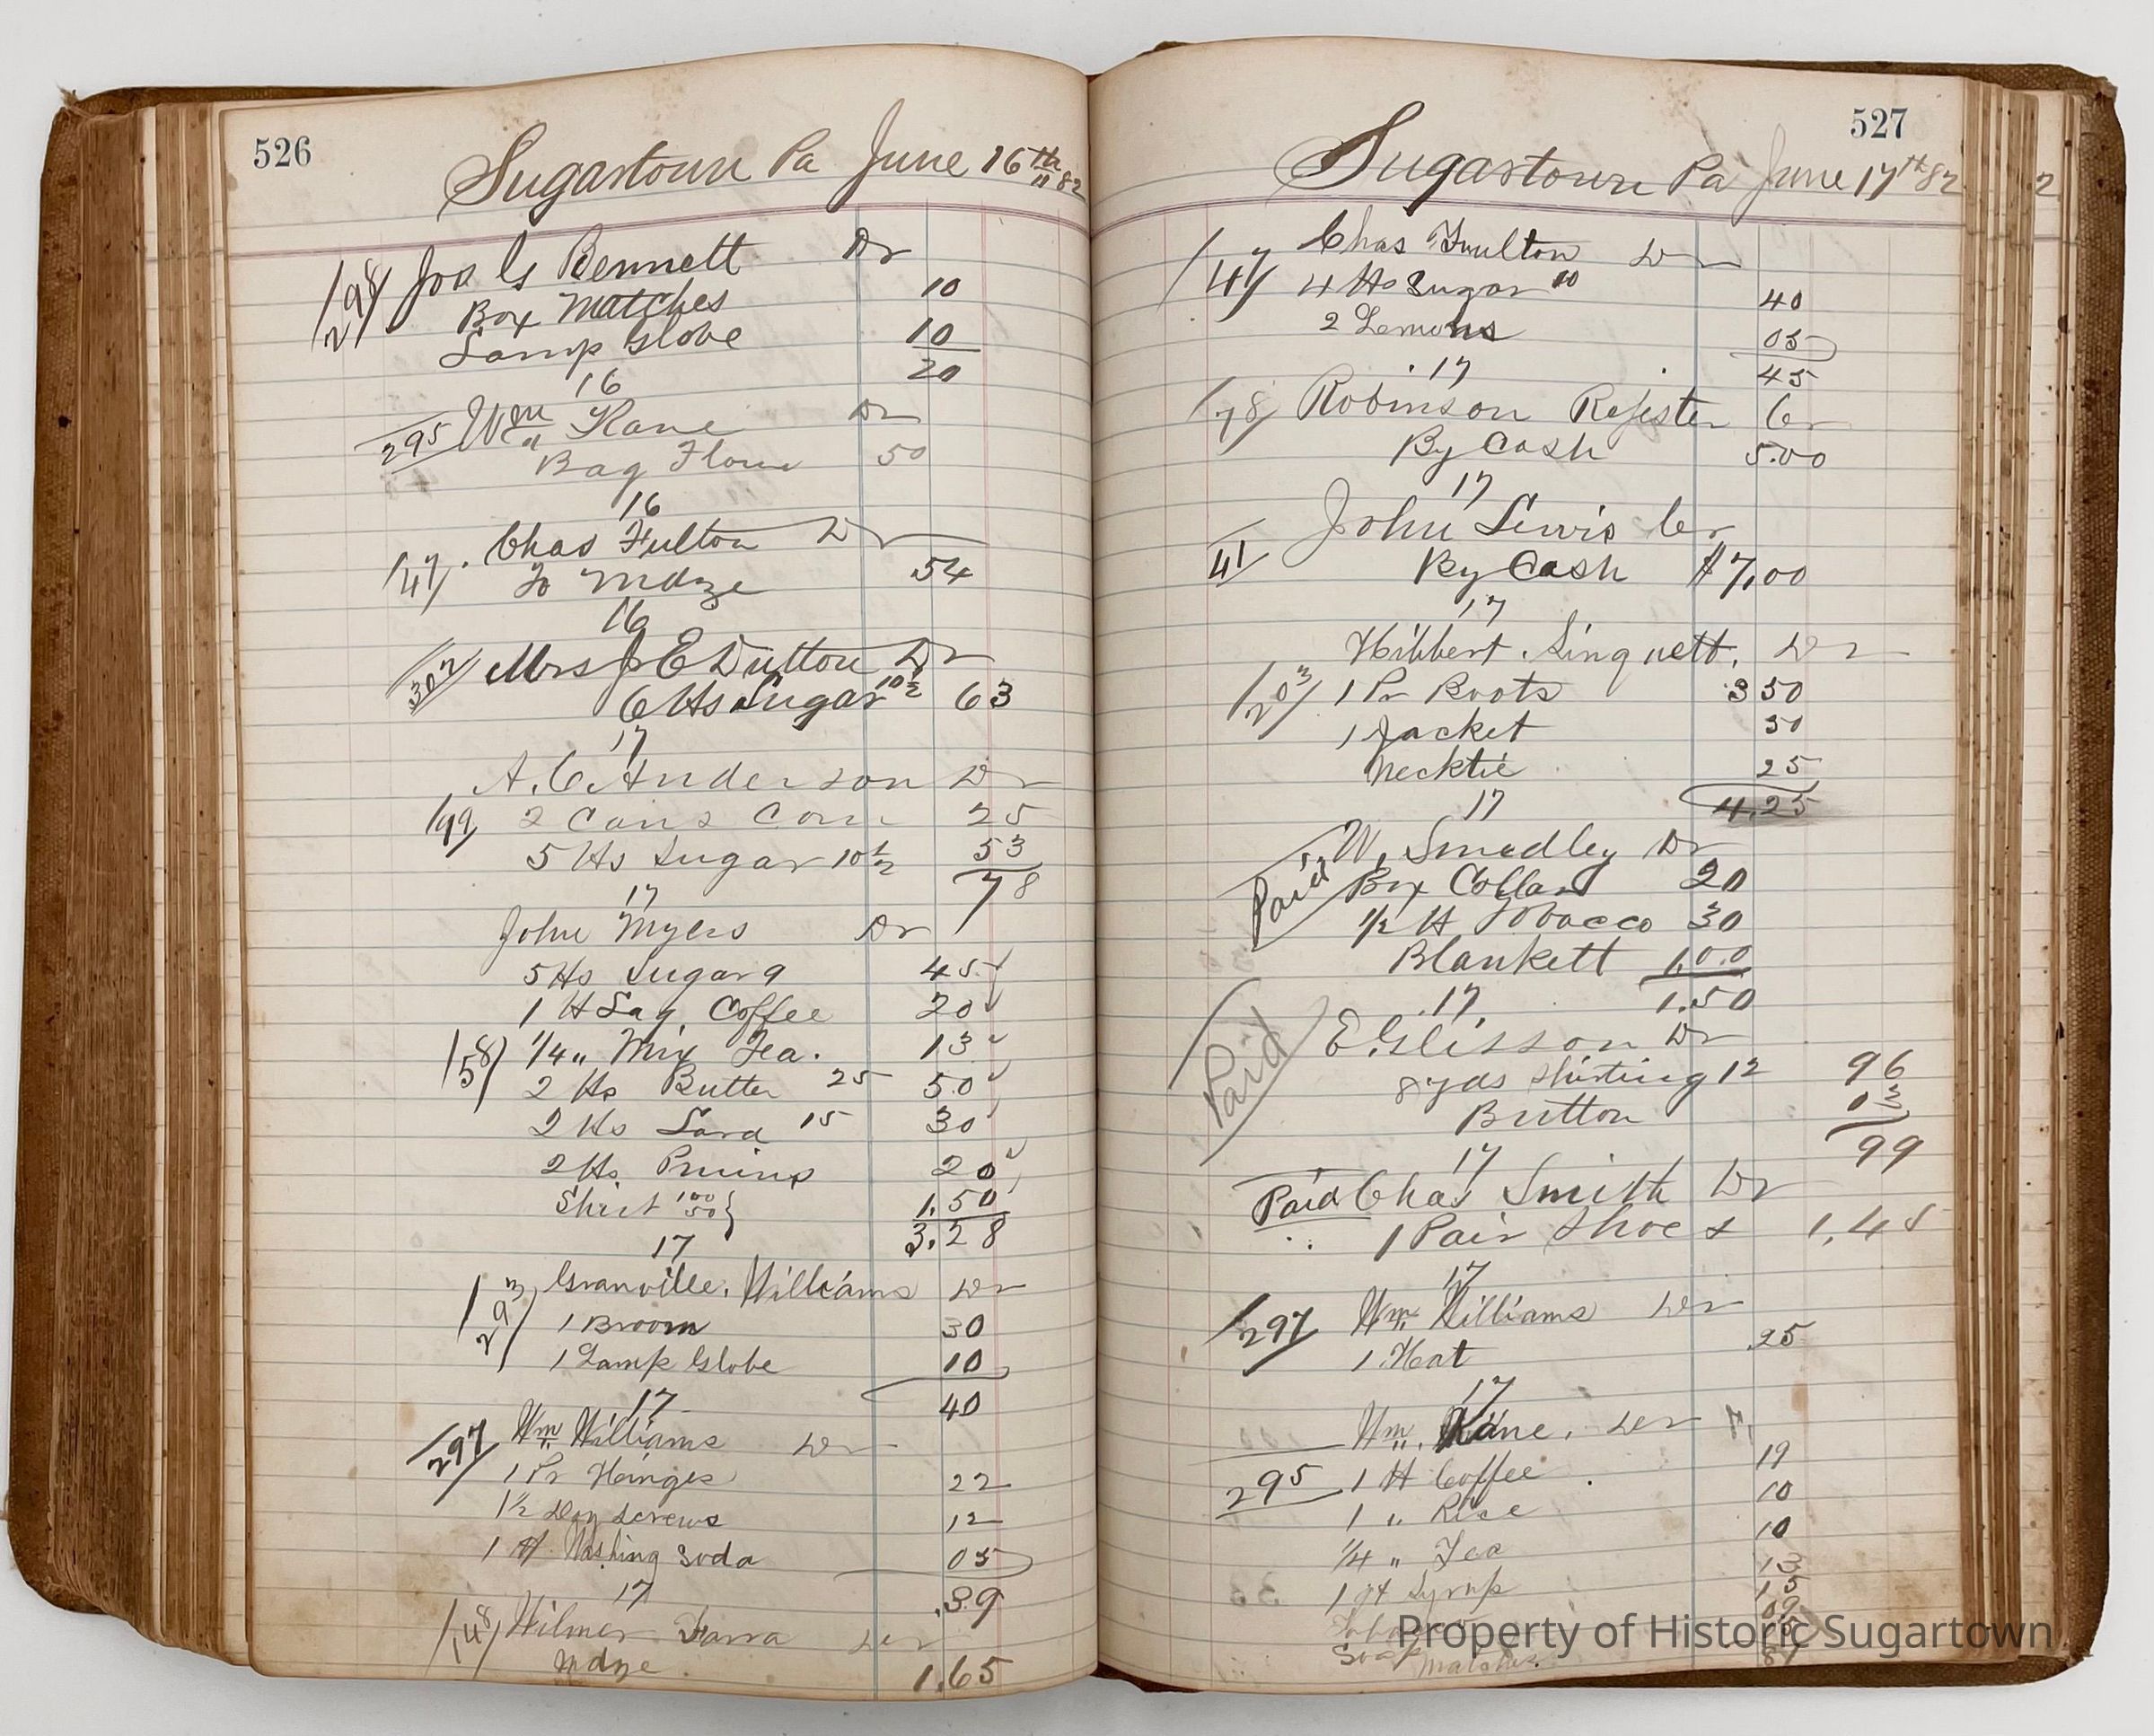 526
Sugartown Pa June 16th "82
298 Jos G Bennett Dr
Box Matches 10
Lamp Globe 10
20
16
295 Wm Kane Dr
Bag Flour 50
16
47 Chas Fulton Dr
To Mdze 54
16
302 Mrs J E Dutton Dr
6 lbs Sugar 10½ 63
17
A. C. Anderson Dr
199 2 Cans Corn 25
5 lbs Sugar 10½ 53
78
17
John Myers Dr
5 lbs Sugar 9 45
1 lb Lag Coffee 20
58 1/4 " Mix Tea. 13
2 lbs Butter 25 50
2 lbs Lard 15 30
2 lbs Pruins 20
Shirt 100 50 } 1.50
3.28
17
293 Granville. Williams Dr
1 Broom 30
1 Lamp Globe 10
40
17
297 Wm Williams Dr
1 Pr Hinges 22
1½ Doz Screws 12
1 lb Washing Soda 05
.39
17
148 Wilmer Farra Dr
Mdze. 1.65
527
Sugartown Pa June 17th 82
2
47 Chas Fulton Dr
4 lbs Sugar 10 40
2 Lemons 05
45
17
78 Robinson Register Cr
By Cash 5.00
17
John Lewis Cr
41 By Cash $7.00
17
Hibbert. Dr
203 1 Pr Boots 3 50
1 Jacket 50
Necktie 25
4.25
17
Paid W. Smedley Dr
Box Collars 20
1/2 lb Tobacco 30
Blankett 1.00
1.50
17.
Paid E. Glisson Dr
8 yds Shirting 12 96
Button 03
99
17
Paid Chas Smith Dr
1 Pair Shoes 1.45
17
297 Wm Williams Dr
1 Hat 25
17
Wm. Kane. Dr
295 1 lb Coffee 19
1 " Rice 10
1/4 " Tea 10
1 qt Syrup 13
Soap
Matches
Property of Historic Sugartown